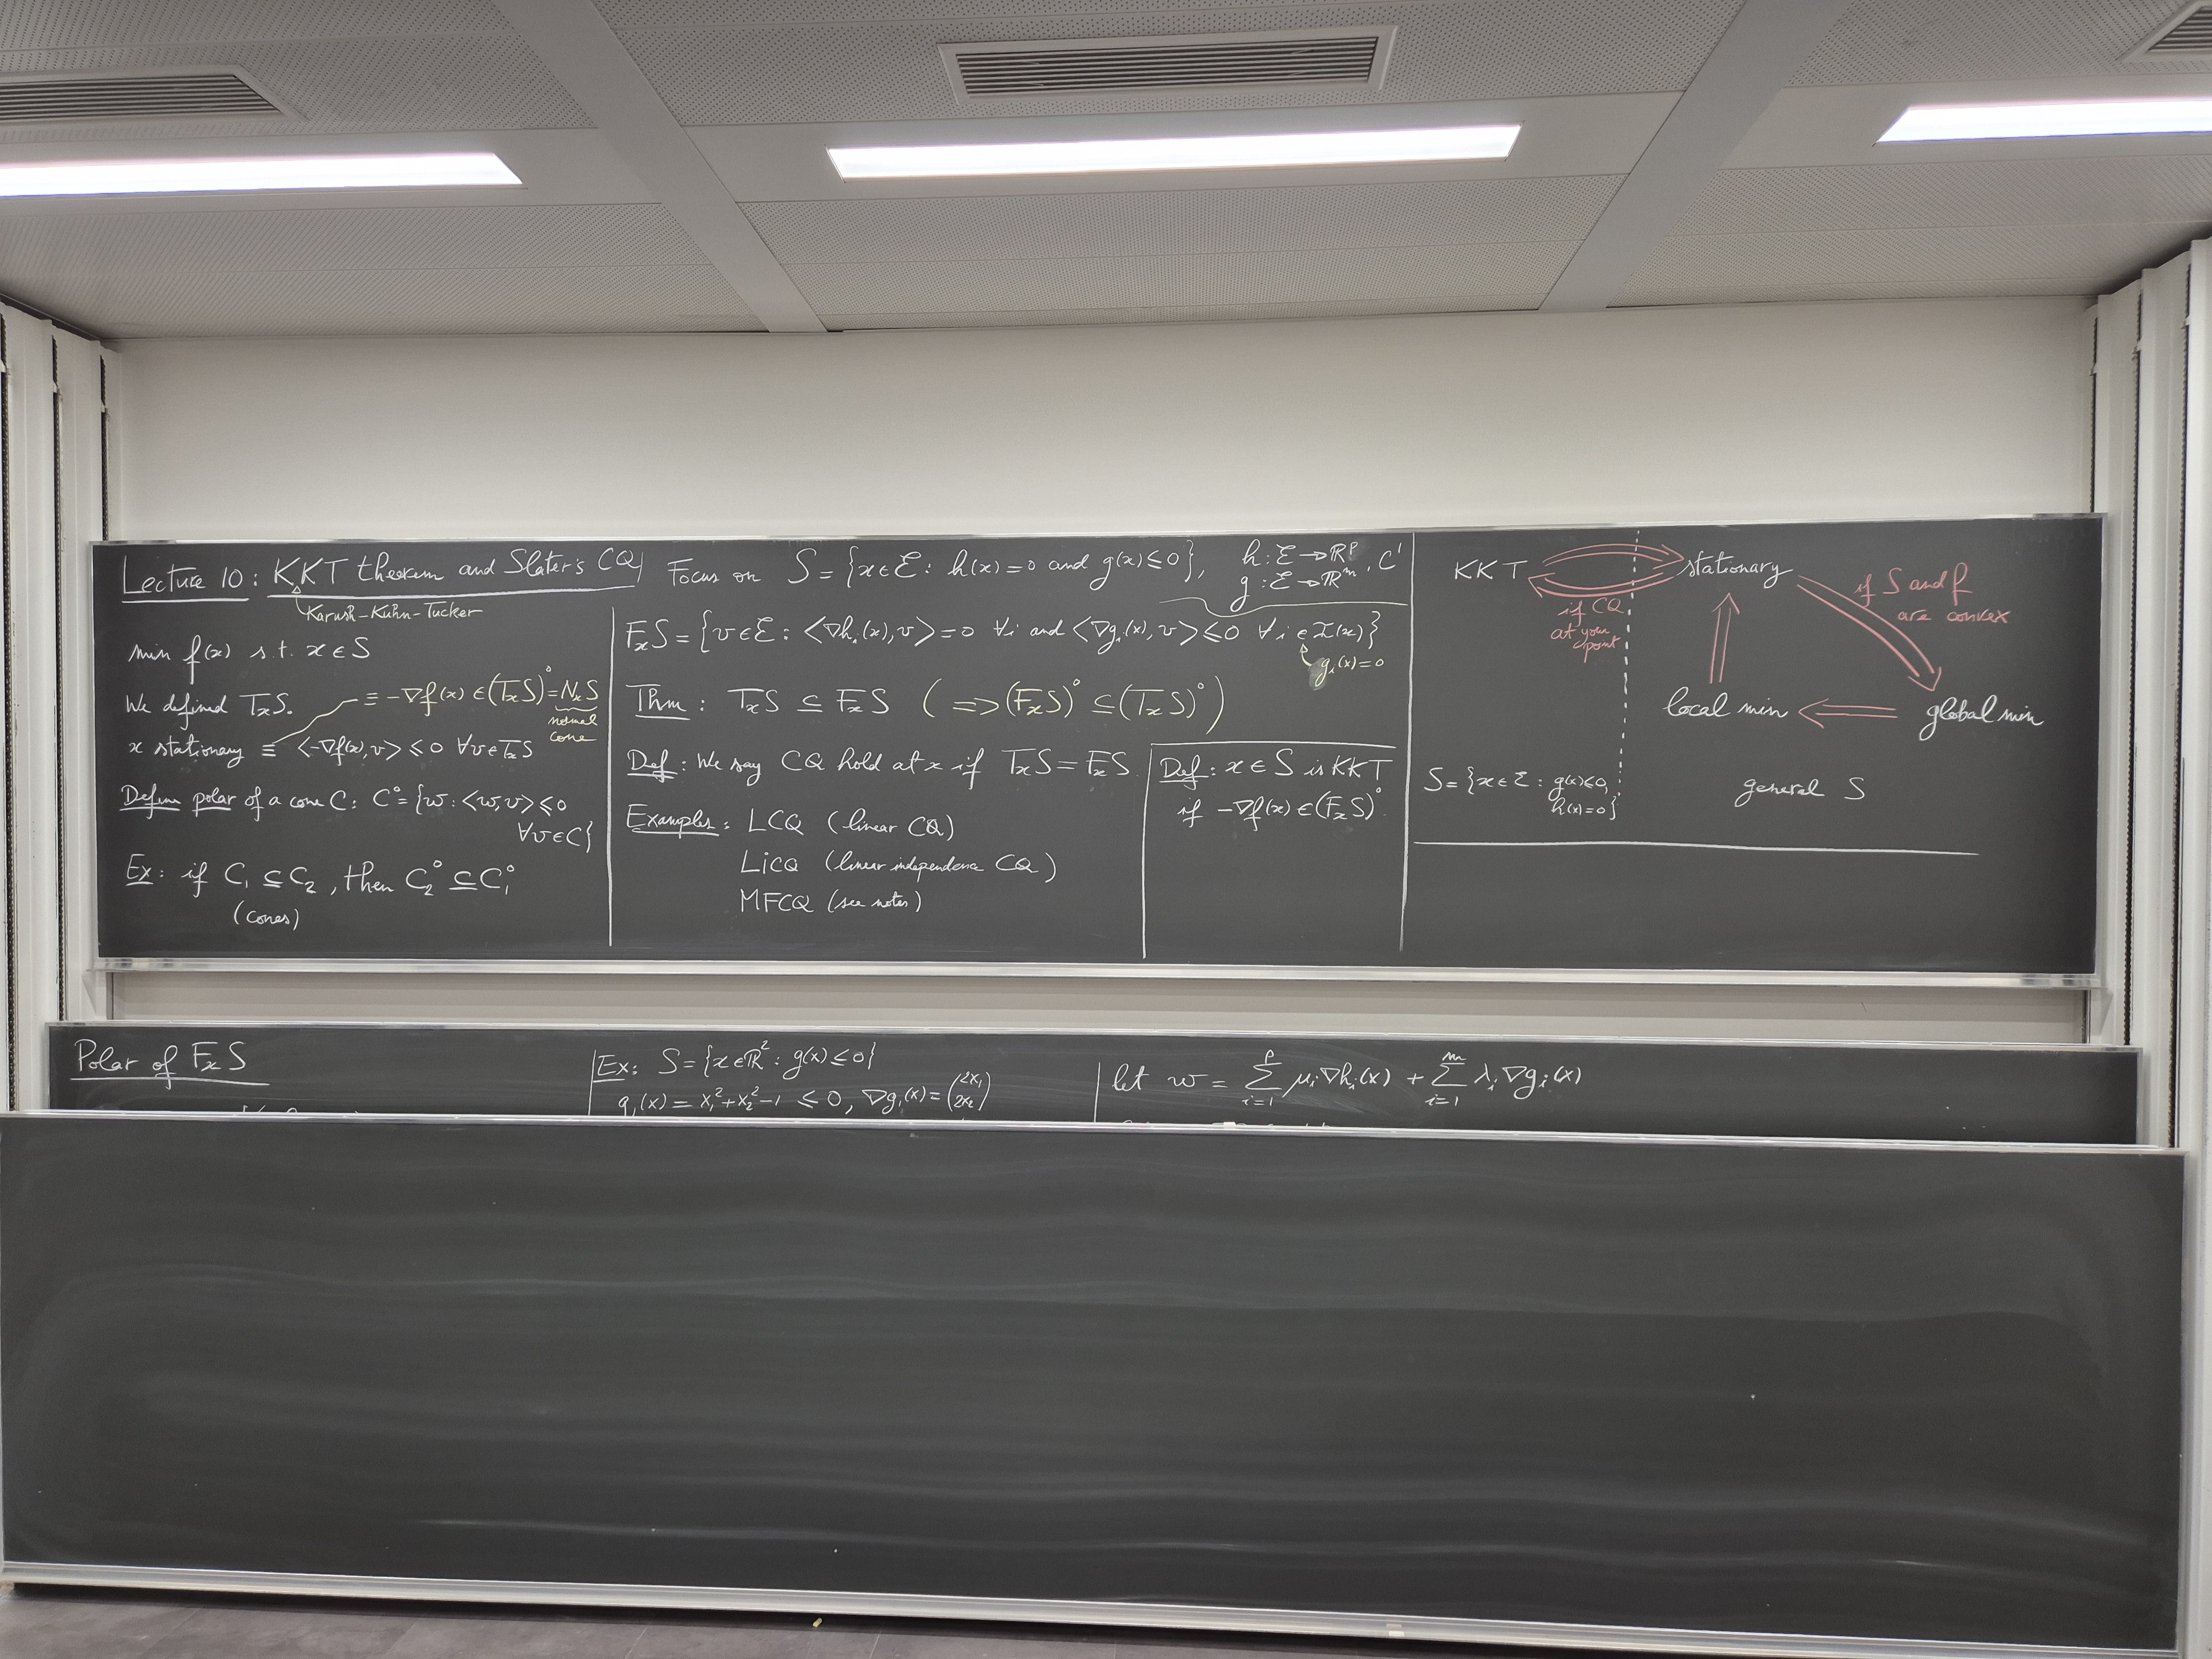 Lecture 10: KKT theorem and Slater's CQ
Karush-Kuhn-Tucker
min f(x) s.t. x ∈ S
We defined TₓS.
≡ -∇f(x) ∈ (TₓS)° = NₓS
normal
cone
x stationary ≡ <-∇f(x), v> ≤ 0 ∀v ∈ TₓS
Define polar of a cone C: C° = {w : <w, v> ≤ 0
∀v ∈ C}
Ex: if C₁ ⊆ C₂, then C₂° ⊆ C₁°
(cones)
Focus on S = {x ∈ ℰ : h(x) = 0 and g(x) ≤ 0}, h: ℰ → ℝᵖ, C¹
g: ℰ → ℝᵐ
FₓS = {v ∈ ℰ : <∇hᵢ(x), v> = 0 ∀i and <∇gᵢ(x), v> ≤ 0 ∀i ∈ I(x)}
gᵢ(x) = 0
Thm: TₓS ⊆ FₓS (⟹ (FₓS)° ⊆ (TₓS)°)
Def: We say CQ hold at x if TₓS = FₓS.
Examples: LCQ (linear CQ)
LICQ (linear independence CQ)
MFCQ (see notes)
Def: x ∈ S is KKT
if -∇f(x) ∈ (FₓS)°.
KKT ⟹ stationary
⟸
if CQ
at your
point
if S and f
are convex
local min ⟸ global min
S = {x ∈ ℰ : g(x) ≤ 0,
h(x) = 0}
general S
Polar of FₓS
Ex: S = {x ∈ ℝ² : g(x) ≤ 0}
g₁(x) = x₁² + x₂² - 1 ≤ 0, ∇g₁(x) = (2x₁
2x₂)
let w = ∑ᵢ₌₁ᵖ μᵢ∇hᵢ(x) + ∑ᵢ₌₁ᵐ λᵢ∇gᵢ(x)